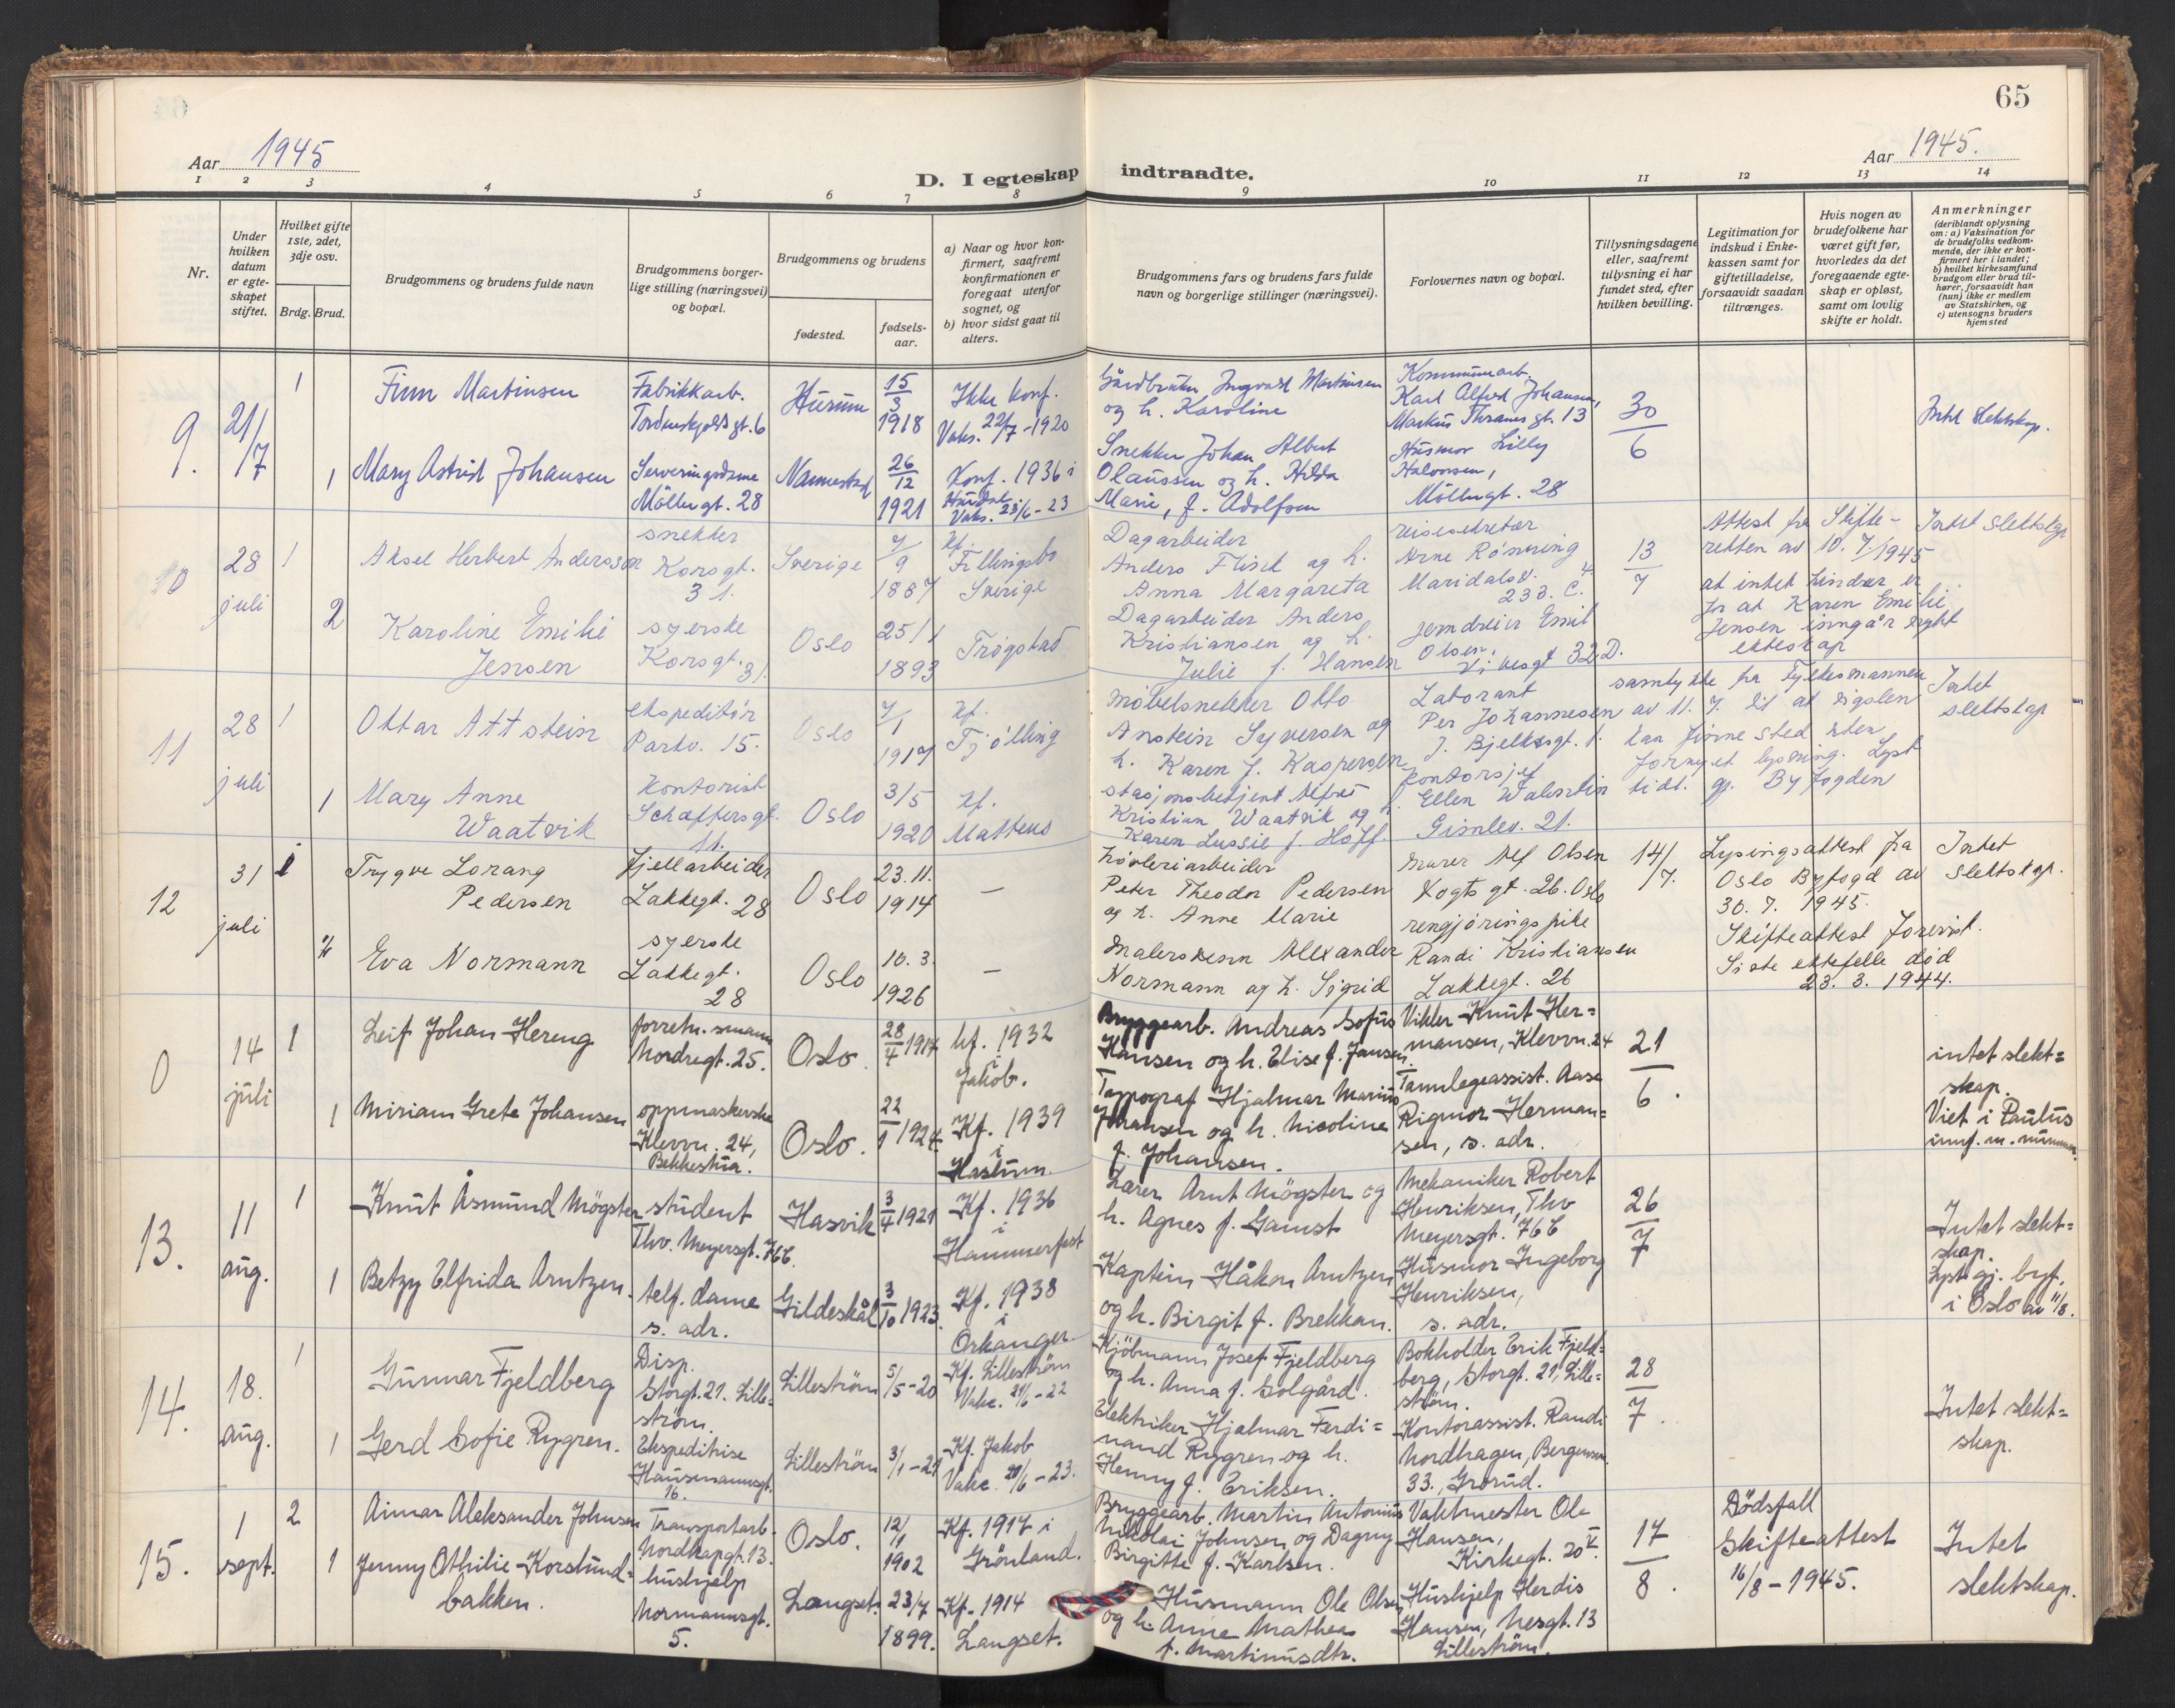 65
Aar 1945
Aar 1945.
D. I egteskap indtraadte.
1 2 3 4 5 6 7 8 9 10 11 12 13 14
Nr.
Under hvilken datum er egte-skapet stiftet.
Hvilket gifte 1ste, 2det, 3dje osv.
Brdg. Brud.
Brudgommens og brudens fulde navn
Brudgommens borger-lige stilling (næringsvei) og bopæl.
Brudgommens og brudens
fødested.
fødsels-aar.
a) Naar og hvor kon-firmert, saafremt konfirmationen er foregaat utenfor sognet, og
b) hvor sidst gaat til alters.
Brudgommens fars og brudens fars fulde navn og borgerlige stillinger (næringsvei).
Forlovernes navn og bopæl.
Tillysningsdagene eller, saafremt tillysning ei har fundet sted, efter hvilken bevilling.
Legitimation for indskud i Enke-kassen samt for giftetilladelse, forsaavidt saadan tiltrænges.
Hvis nogen av brudefolkene har været gift før, hvorledes da det foregaaende egte-skap er opløst, samt om lovlig skifte er holdt.
Anmerkninger
(deriblandt oplysning om: a) Vaksination for de brudefolks vedkom-mende, der ikke er kon-firmert her i landet; b) hvilket kirkesamfund brudgom eller brud til-hører, forsaavidt han (hun) ikke er medlem av Statskirken, og c) utensogns bruders hjemsted
9. 21/7
1 Finn Martinsen
Fabrikkarb.
Tordenskjoldsgt. 6
Hurum
15/3 1918
Ikke konf.
Vaks. 22/7-1920
Gårdbruker Ingvald Martinsen
og h. Karoline
Kommunearb.
Karl Alfred Johansen,
Markus Thranes gt. 13
30/6
Intet slektskap.
1 Mary Astrid Johansen
Serveringsdame
Møllergt. 28
Nannestad
26/12 1921
Konf. 1936 i
Hurdal
Vaks. 23/6-23
Snekker Johan Albert
Olaussen og h. Hilda
Marie, f. Adolfsen
Husmor Lilly
Halvorsen,
Møllergt. 28
10 28 juli
1 Aksel Herbert Andersson
snekker
Korsgt.
31.
Sverige
7/9 1887
kf.
Fellingsbo
Sverige
Dagarbeider
Anders Flisk og h.
Anna Margareta
reisesekretær
Arne Rønning
Maridalsv.
233. C.
13/7
Attest fra Skifte-
retten av 10.7/1945
at intet hinder er
for at Karen Emilie
Jensen inngår nytt
ekteskap
Intet slektskap
2 Karoline Emilie
Jensen
syerske
Korsgt. 31.
Oslo
25/1 1893
Trøgstad
Dagarbeider Anders
Kristiansen og h.
Julie f. Hansen
jerndreier Emil
Olsen,
Vibesgt 32.D.
11 28 juli
1 Ottar Attstein
ekspeditør
Parkv. 15.
Oslo
7/1 1917
kf.
Tjølling
møbelsnekker Otto
Anstein Syversen og
h. Karen f. Kaspersen
Laborant
Per Johannesen
J. Bjelkesgt. 1.
samtykke fra Fylkesmannen
av 11. 7. til at vigslen
kan finne sted uten
fornyet lysning. Lyst
tidl. gj. Byfogden
Intet
slektskap
1 Mary Anne
Waatvik
Kontorist
Schæffersgt.
11.
Oslo
3/5 1920
kf.
Matteus
stasjonsbetjent Alfred
Kristian Waatvik og h.
Karen Lussie f. Hoff.
kontorsjef
Ellen Walentin
Gimlev. 21.
12 31 juli
1 Trygve Lorang
Pedersen
fjellarbeider
Lakkegt. 28
Oslo
23.11. 1914
—
høvleriarbeider
Peter Theodor Pedersen
og h. Anne Marie
murer Alf Olsen
Vogts gt. 26. Oslo
14/7.
Lysingsattest fra
Oslo Byfogd av
30. 7. 1945.
Skifteattest forevist.
Siste ektefelle død
23. 3. 1944.
Intet
slektskap.
Eva Normann
syerske
Lakkegt.
28
Oslo
10. 3. 1926
—
malersvenn Alexander
Normann og h. Sigrid
rengjøringspike
Randi Kristiansen
Lakkegt. 26
0 14 juli
1 Leif Johan Hereng
forretn.smann
Nordregt. 25.
Oslo.
28/4 1917
kf. 1932
i
Jakob.
Bryggearb. Andreas Sofus
Hansen og h. Elise f. Jansen.
Vikler Knut Her=
mansen, Klevvn. 24
21/6.
intet slekt=
skap.
Viet i Paulus
innf. m. nummer.
1 Miriam Grete Johansen
oppmaskerske
Klevvn. 24,
Bekkestua.
Oslo.
22/1 1924.
Kf. 1939
i
Haslum.
Typograf Hjalmar Marius
Johansen og h. Nicoline
f. Johansen.
Tannlegeassist. Aase
Rigmor Herman=
sen, s. adr.
13. 11 aug.
1 Knut Åsmund Møgster
student
Thv. Meyersgt. 76 C.
Hasvik
3/4 1921
Kf. 1936
i
Hammerfest
Lærer Arnt Møgster og
h. Agnes f. Gamst
Mekaniker Robert
Henriksen, Thv
Meyersgt. 76 C
26/7
Intet slekt=
skap.
Lyst gj. byf.
i Oslo av 11/8.
1 Betzy Elfrida Arntzen.
telf. dame
s. adr.
Gildeskål
3/10 1923.
Kf. 1938
i
Orkanger.
Kaptein Håkon Arntzen
og h. Birgit f. Brekkan.
Husmor Ingeborg
Henriksen,
s. adr.
14. 18. aug.
1 Gunnar Fjeldberg
Disp.
Storgt. 21. Lille=
strøm.
Lillestrøm
5/5-20
Kf. Lillestrøm
Vakc. 21/6-22
Kjøbmann Josef Fjeldberg
og h. Anna f. Solgård.
Bokholder Erik Fjeld=
berg, Storgt. 21, Lille=
strøm.
28/7.
Intet slekt=
skap.
1 Gerd Sofie Rygren.
Ekspeditrise
Hausmannsgt.
16.
Lillestrøm
3/1-21
Kf. Jakob
Vakc. 21/6-23.
Elektriker Hjalmar Ferdi=
nand Rygren og h.
Henny f. Eriksen.
Kontorassist. Randi
Nordhagen, Bergensvn.
33., Grorud.
15. 1 sept.
2 Aimar Aleksander Johnsen
Transportarb.
Nordkapgt. 13.
Oslo.
12/11 1902
Kf. 1917 i
Grønland.
Bryggearb. Martin Antonius
Nikolai Johnsen og Dagny
Birgitte f. Karlsen.
Vaktmester Ole
Hansen,
Kirkegt. 20 V.
17/8.
Dødsfall
Skifteattest
16/8-1945.
Intet
slektskap.
1 Jenny Othilie Korslund=
bakken.
hushjelp
Normannsgt.
5.
Langset.
23/7 1899.
Kf. 1914
Langset.
Husmann Ole Olsen
og h. Anne Mathea
f. Martinusdtr.
Hushjelp Herdis
Hansen, Nesgt. 13
Lillestrøm.